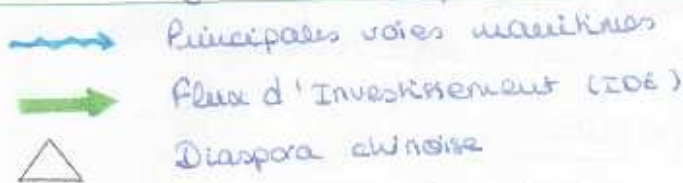 Principales voies maritimes
Flux d'Investissement (IDE)
Diaspora chinoise